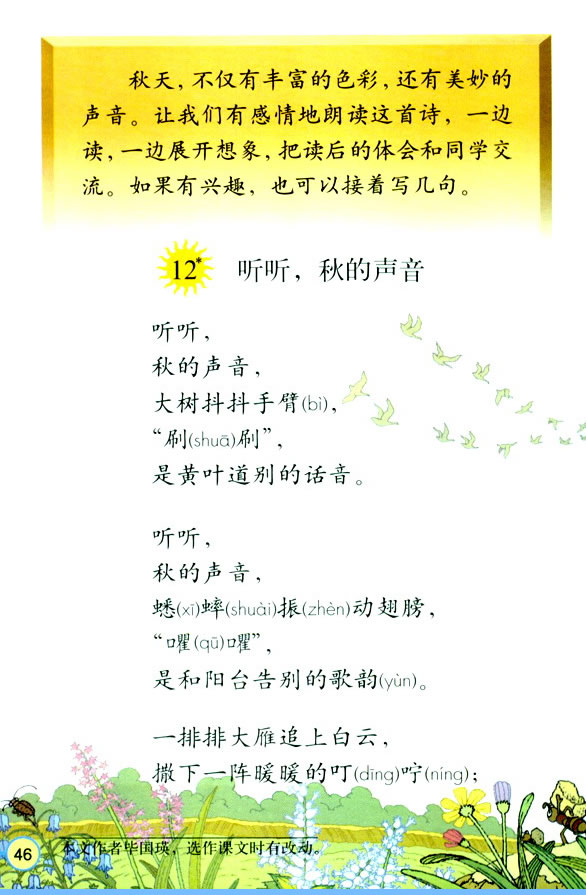 秋天，不仅有丰富的色彩，还有美妙的
声音。让我们有感情地朗读这首诗，一边
读，一边展开想象，把读后的体会和同学交
流。如果有兴趣，也可以接着写几句。
12* 听听，秋的声音
听听，
秋的声音，
大树抖抖手臂(bì)，
“刷(shuā)刷”，
是黄叶道别的话音。
听听，
秋的声音，
蟋(xī)蟀(shuài)振(zhèn)动翅膀，
“㘗(qū)㘗”，
是和阳台告别的歌韵(yùn)。
一排排大雁追上白云，
撒下一阵暖暖的叮(dīng)咛(níng)；
本文作者华国瑛，选作课文时有改动。
46